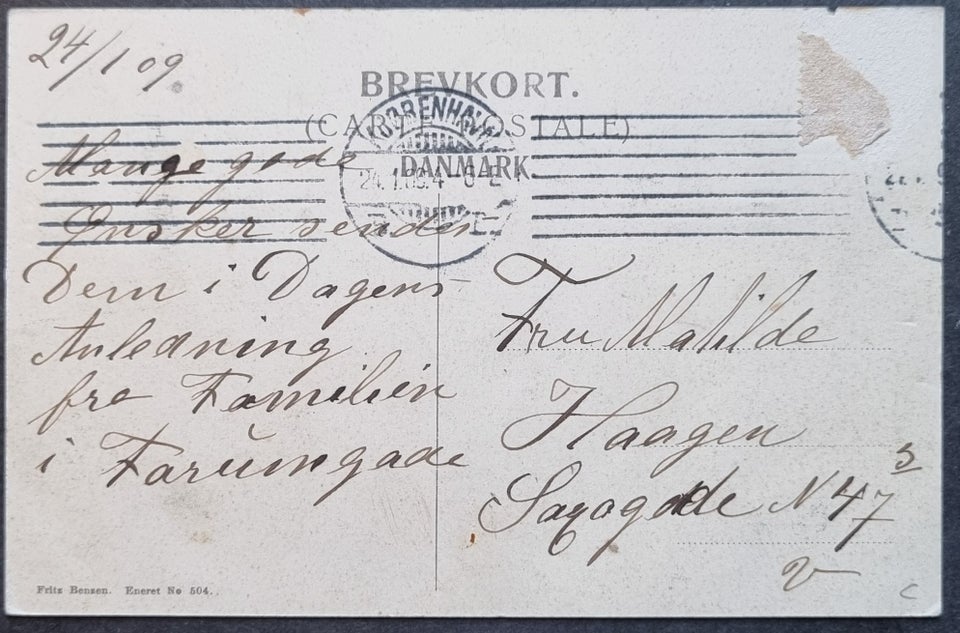 24/1 09
BREVKORT.
(CARTE POSTALE)
DANMARK.
KJØBENHAVN
24.1.09.4-6 E
Mange gode
Ønsker sendes
Dem i Dagens
Anledning
fra Familien
i Farumgade
Fru Matilde
Haagen
Saxogade N 47 3
V
Fritz Benzen. Eneret No 504.
C